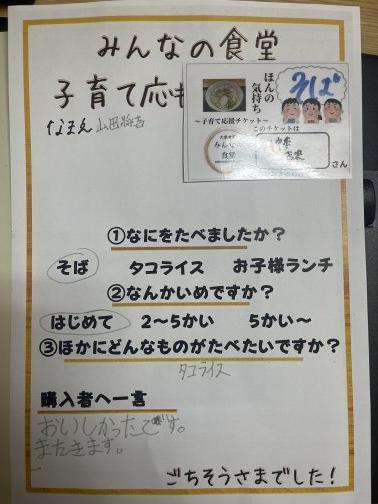 みんなの食堂
子育て応
なまえ
そば
ほんの
気持ち
～子育て応援チケット～
このチケットは
みん
食堂
さん
①なにをたべましたか？
そば タコライス お子様ランチ
②なんかいめですか？
はじめて 2～5かい 5かい～
③ほかにどんなものがたべたいですか？
タコライス
購入者へ一言
おいしかったです。
またきます。
ごちそうさまでした！